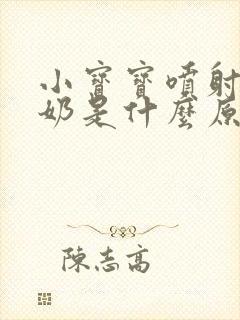 小寶寶噴射
奶是什麼原
陳志高